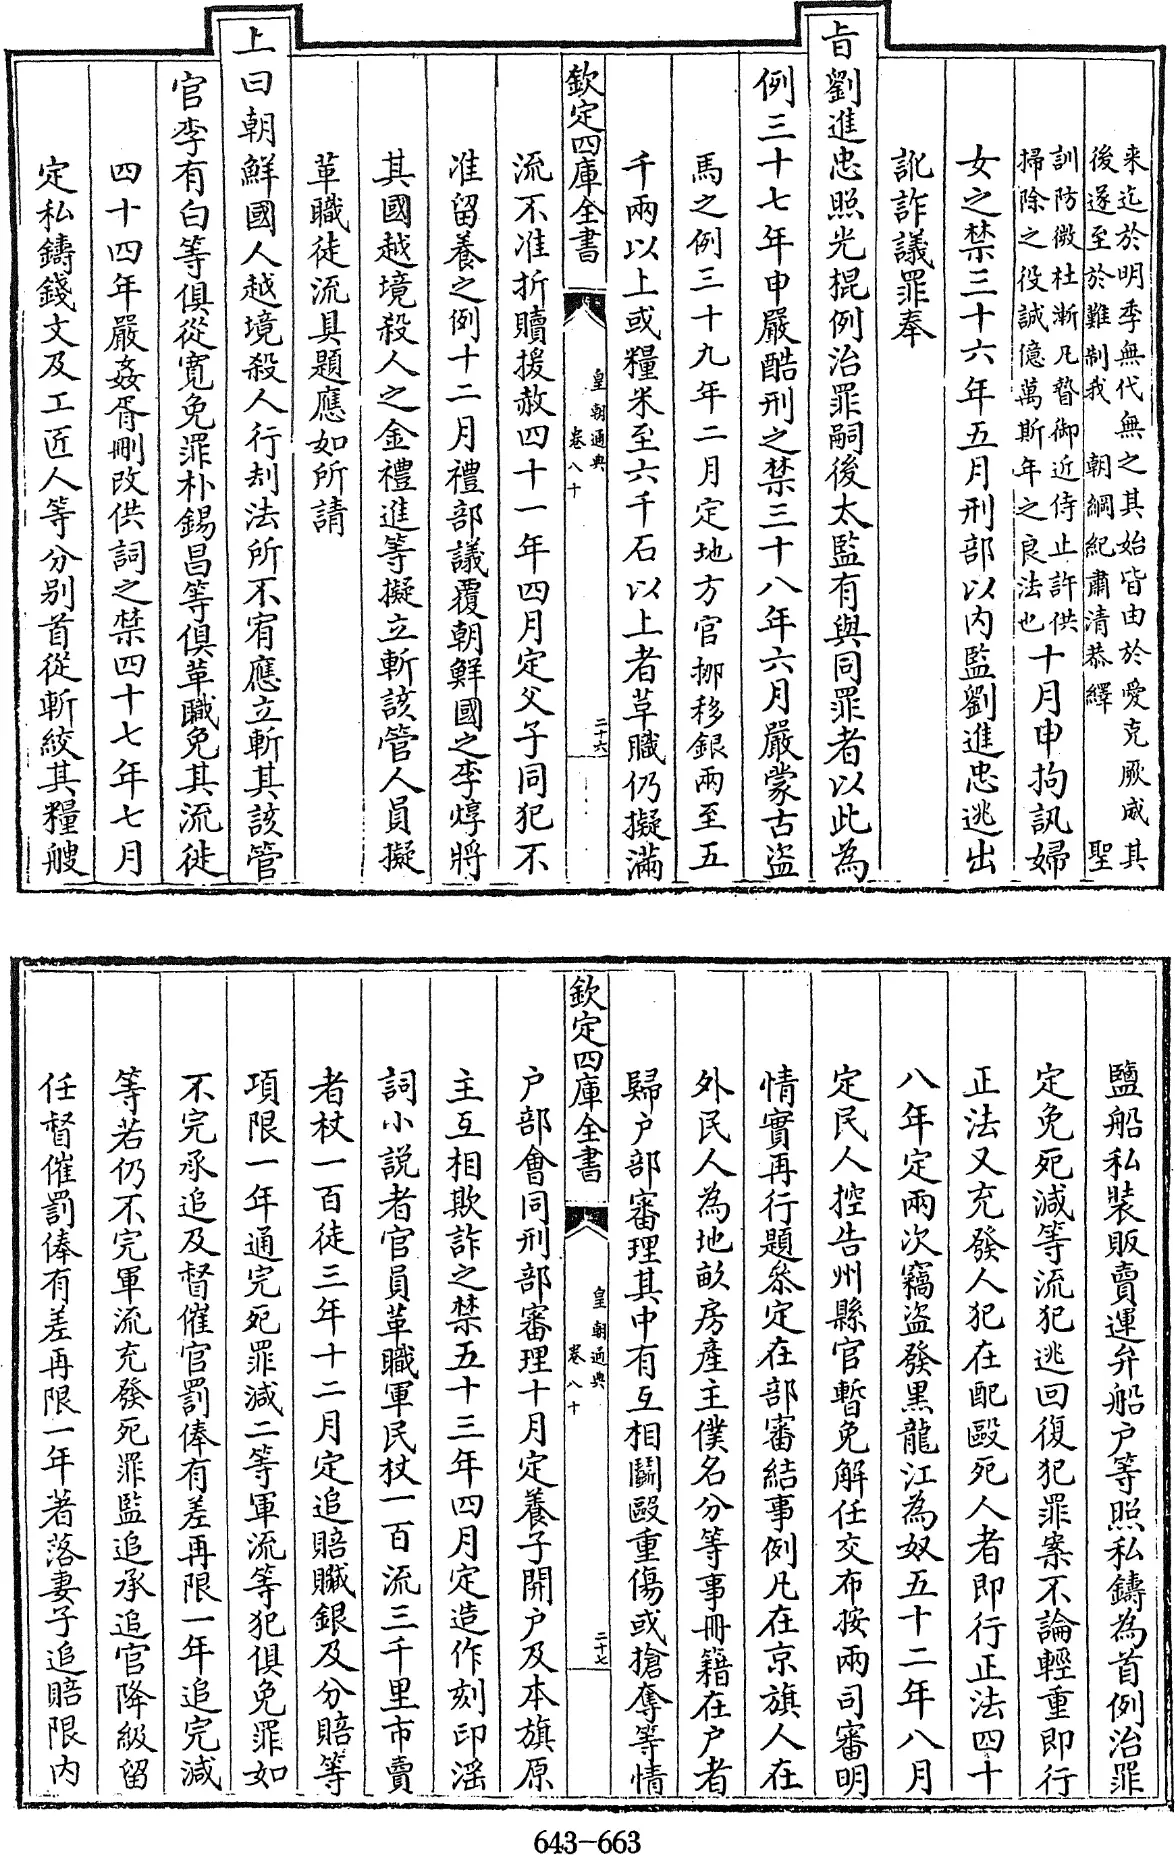 来迄於明季無代無之其始皆由於愛克厥威其
後遂至於難制我　朝綱紀肅清恭繹　聖
訓防微杜漸凡暬御近侍止許供
掃除之役誠億萬斯年之良法也
十月申拘訊婦
女之禁三十六年五月刑部以内監劉進忠逃出
訛詐議罪奉
旨劉進忠照光棍例治罪嗣後太監有與同罪者以此為
例三十七年申嚴酷刑之禁三十八年六月嚴蒙古盜
馬之例三十九年二月定地方官挪移銀兩至五
千兩以上或糧米至六千石以上者革職仍擬滿
欽定四庫全書
皇朝通典
卷八十
二十六
流不准折贖援赦四十一年四月定父子同犯不
准留養之例十二月禮部議覆朝鮮國之李焞將
其國越境殺人之金禮進等擬立斬該管人員擬
革職徒流具題應如所請
上曰朝鮮國人越境殺人行刦法所不宥應立斬其該管
官李有白等俱從寛免罪朴錫昌等俱革職免其流徙
四十四年嚴姦胥刪改供詞之禁四十七年七月
定私鑄錢文及工匠人等分别首從斬絞其糧艘
鹽船私裝販賣運弁船户等照私鑄為首例治罪
定免死減等流犯逃回復犯罪案不論輕重即行
正法又充發人犯在配毆死人者即行正法四十
八年定兩次竊盜發黑龍江為奴五十二年八月
定民人控告州縣官暫免解任交布按兩司審明
情實再行題叅定在部審結事例凡在京旗人在
外民人為地畝房產主僕名分等事冊籍在户者
歸户部審理其中有互相鬭毆重傷或搶奪等情
欽定四庫全書
皇朝通典
卷八十
二十七
户部會同刑部審理十月定養子開户及本旗原
主互相欺詐之禁五十三年四月定造作刻印淫
詞小説者官員革職軍民杖一百流三千里市賣
者杖一百徒三年十二月定追賠贓銀及分賠等
項限一年通完死罪減二等軍流等犯俱免罪如
不完承追及督催官罰俸有差再限一年追完減
等若仍不完軍流充發死罪監追承追官降級留
任督催罰俸有差再限一年著落妻子追賠限内
643-663